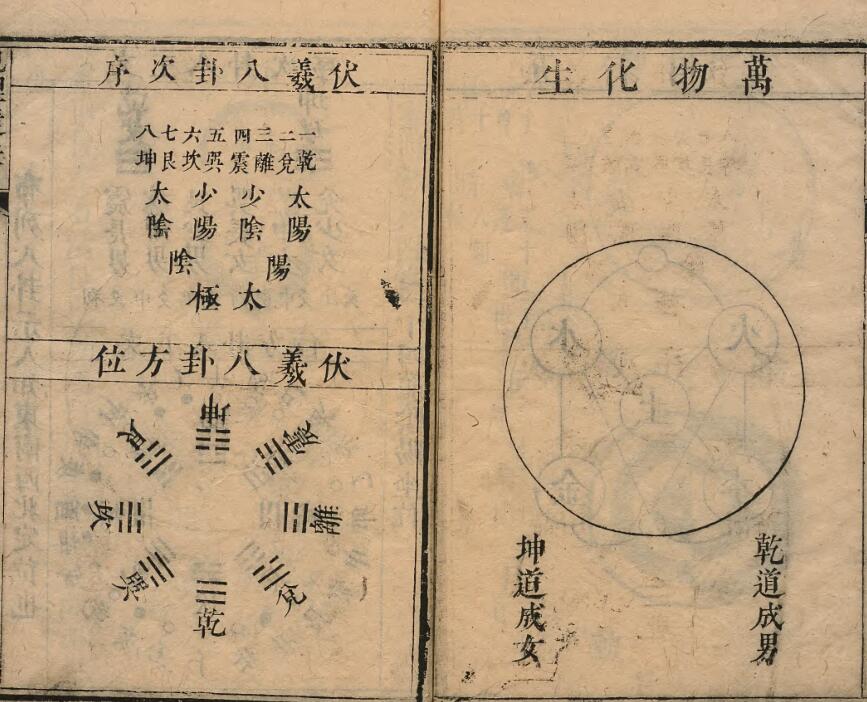 萬物化生
乾道成男
坤道成女
伏羲八卦次序
一乾
二兌
三離
四震
五巽
六坎
七艮
八坤
太陽
少陰
少陽
太陰
陽
陰
太極
伏羲八卦方位
乾
兌
離
震
巽
坎
艮
坤